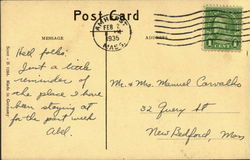 Post Card
MESSAGE
ADDRESS
FEB
1935
MASS.
1 CENT 1
Hell folks:
Just a little
reminder of
the place I have
been staying at
for the past week
Abel.
Mr. & Mrs. Manuel Carvalho
32 Query St
New Bedford, Mass